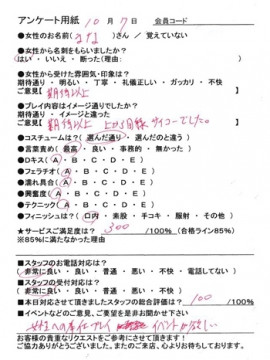 アンケート用紙 10月7日 会員コード
●女性のお名前( )さん / 覚えていない
●女性から名刺をもらいましたか?
はい・いいえ・断った(理由: )
●女性から受けた雰囲気・印象は?
期待通り・明るい・丁寧・礼儀正しい・ガッカリ・不快
ご意見【 期待以上 】
●プレイ内容はイメージ通りでしたか?
期待通り・イメージと違った
ご意見【 期待以上 上から目線 サイコーでした。 】
●コスチュームは?(選んだ通り・選んだのと違う)
●言葉責め(最高・良い・事務的・無かった)
●Dキス(A・B・C・D・E)
●フェラチオ(A・B・C・D・E)
●濡れ具合(A・B・C・D・E)
●興奮度(A・B・C・D・E)
●テクニック(A・B・C・D・E)
●フィニッシュは?(口内・素股・手コキ・服射・その他)
★サービスご満足度は? 300 /100%(合格ライン85%)
※85%に満たなかった理由
■スタッフのお電話対応は?
(非常に良い・良い・普通・悪い・不快・電話してない)
■スタッフの受付対応は?
(非常に良い・良い・普通・悪い・不快)
■本日対応させて頂きましたスタッフの総合評価は? 100 /100%
■イベントなどのご意見、ご要望を是非お聞かせ下さい
女性への奉仕プレイ イベントが欲しい
お客様の貴重なリクエストをご参考にさせて頂きます!
ご協力ありがとうございました。またのご来店、心よりお待ちしております。